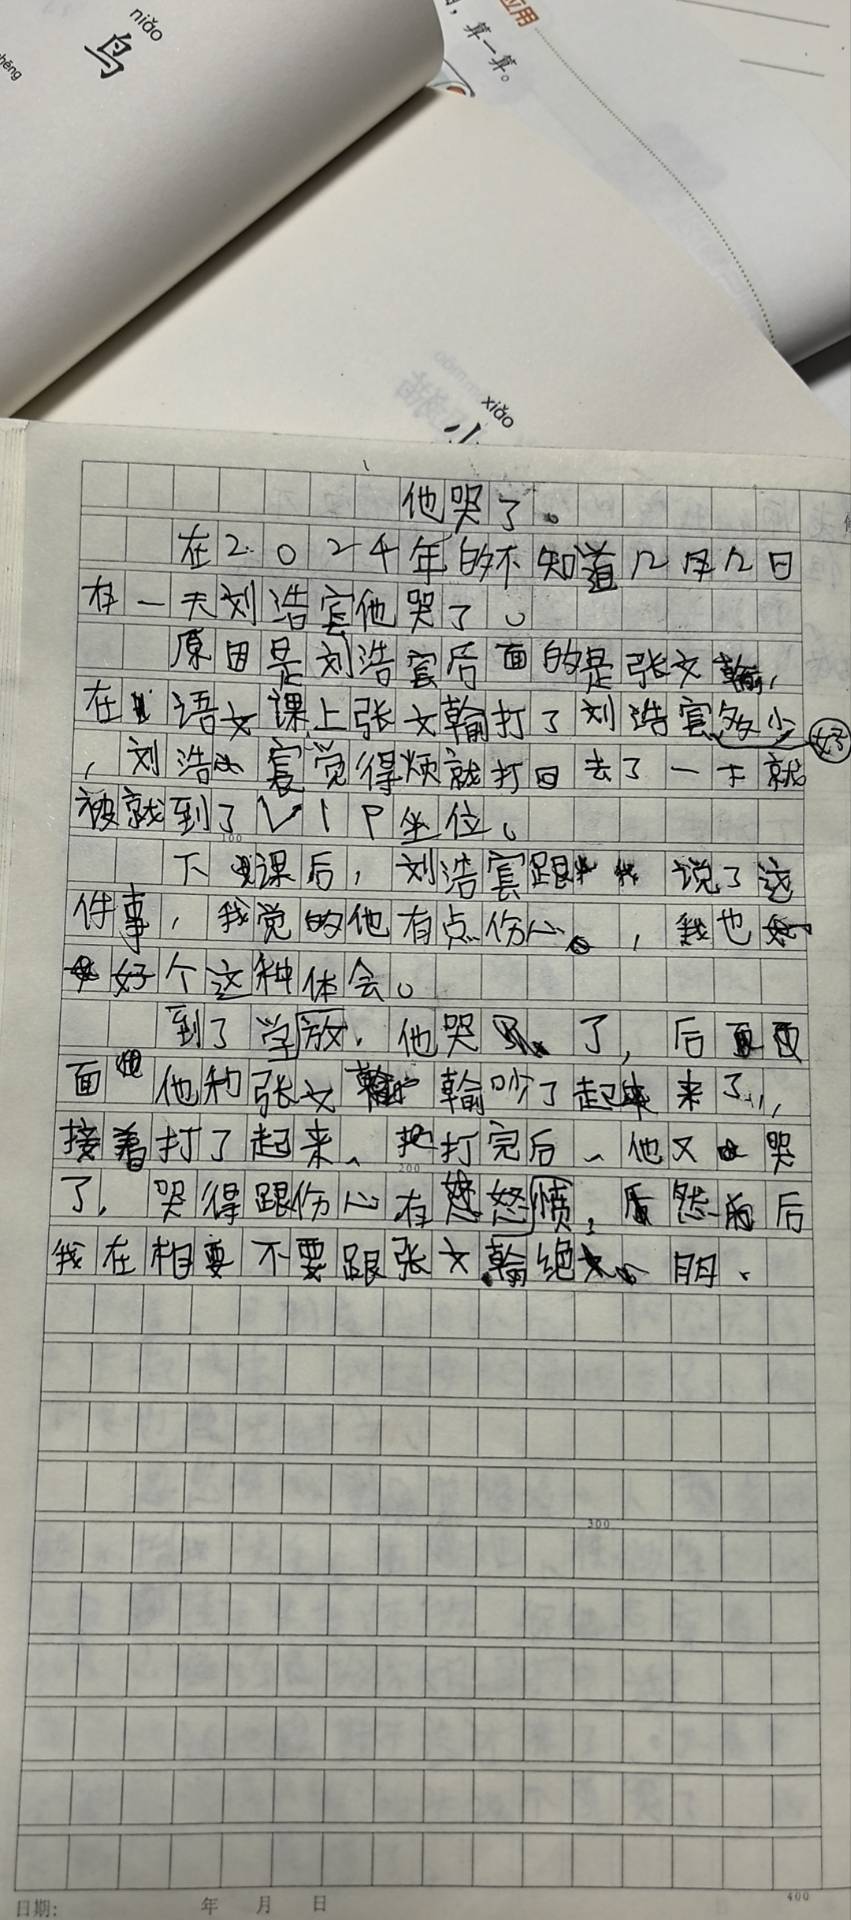 niǎo
鸟
应用
，算一算。
xiǎo
他哭了。
在2024年的不知道几月几日
有一天刘浩宣他哭了。
原因是刘浩宣后面的是张文翰，
在语文课上张文翰打了刘浩宣好多少
，刘浩宣觉得烦就打回去了一下就
被就到了VIP坐位。
下课后，刘浩宣跟 说了这
件事，我觉的他有点伤心。，我也
好个这种体会。
到了学放，他哭了，后
面他和张文翰吵了起来了，
接着打了起来、把打完后、他又哭
了，哭得跟伤心有怒愤，然后
我在相要不要跟张文翰绝朋、
日期: 年 月 日
100
200
300
400